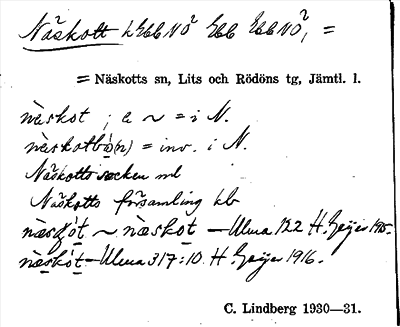 Näskott =
= Näskotts sn, Lits och Rödöns tg, Jämtl. l.
næskot ; a ~ = i N.
næskotbo(n) = inv. i N.
Näskotts socken ml
Näskotts församling kb
næskot ~ næskot — Ulma 122 H. Geijer
næskot — Ulma 317:10. H. Geijer 1916.
C. Lindberg 1930—31.